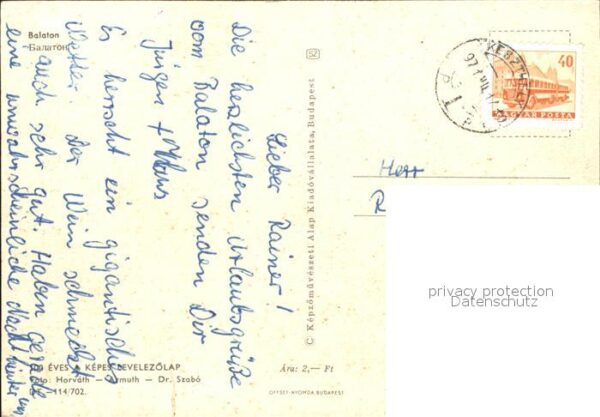 Balaton
Балатон
Lieber Rainer!
Die herzlichsten Urlaubsgrüße
vom Balaton senden Dir
Jürgen + Klaus
Es herrscht ein gigantisches
Wetter. Der Wein schmeckt
auch sehr gut. Haben gerade
eine unwahrscheinliche Nacht hinter uns
ÉVES A KÉPES LEVELEZŐLAP
Foto: Horváth – – Dr. Szabó
114/702.
© Képzőművészeti Alap Kiadóvállalata, Budapest
Ára: 2,— Ft
OFFSET-NYOMDA BUDAPEST
KESZTHELY
40
MAGYAR POSTA
Herr
R
privacy protection
Datenschutz